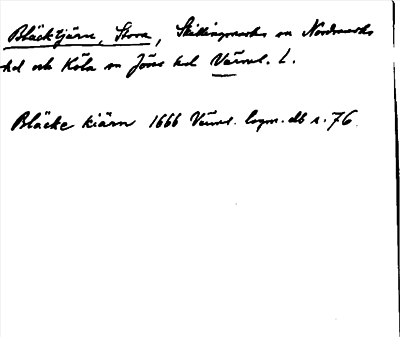 Bläcktjärn, Stora, Skillingmarks sn Nordmarks
hd och Köla sn Jösse hd Värml. L.
Bläcke kiärn 1666 Värml. lagm. db s. 76